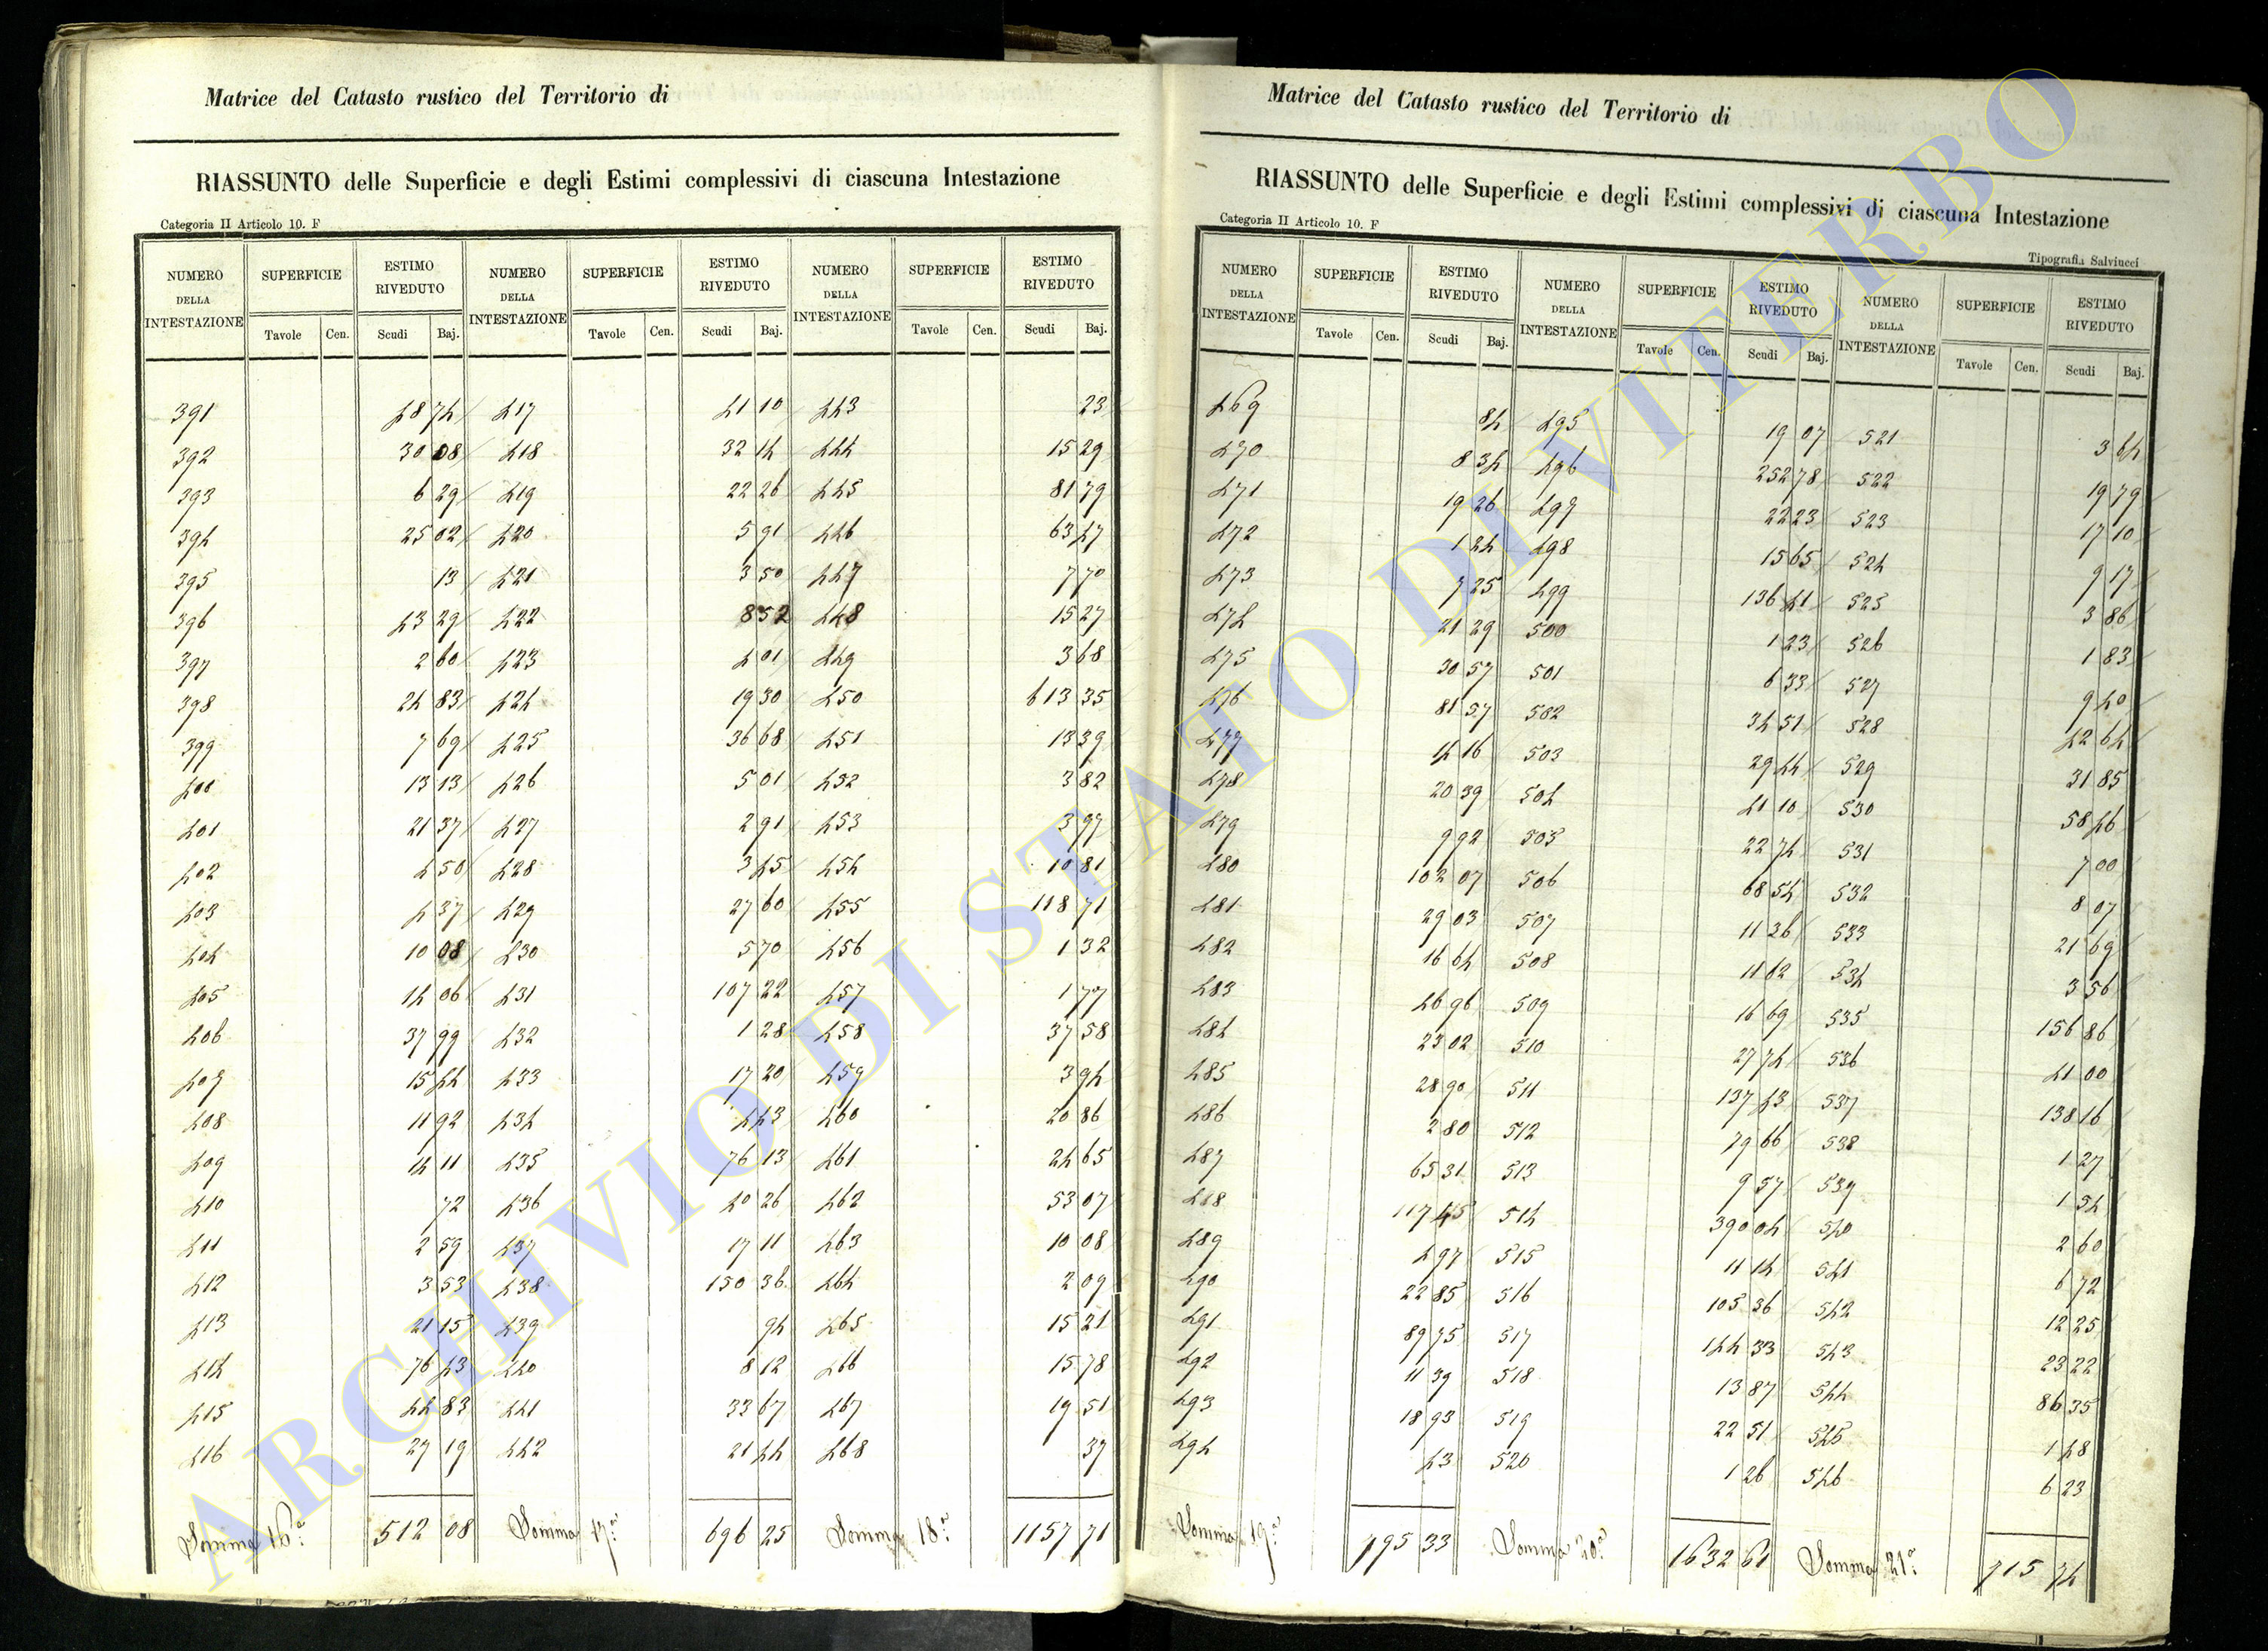 Matrice del Catasto rustico del Territorio di
RIASSUNTO delle Superficie e degli Estimi complessivi di ciascuna Intestazione
Categoria II Articolo 10. F
NUMERO DELLA INTESTAZIONE SUPERFICIE ESTIMO RIVEDUTO NUMERO DELLA INTESTAZIONE SUPERFICIE ESTIMO RIVEDUTO NUMERO DELLA INTESTAZIONE SUPERFICIE ESTIMO RIVEDUTO
Tavole Cen. Scudi Baj. Tavole Cen. Scudi Baj. Tavole Cen. Scudi Baj.
391 48 74 417 41 10 443 23
392 30 08 418 32 14 444 15 29
393 6 29 419 22 26 445 81 79
394 25 02 420 5 91 446 63 47
395 13 421 3 50 447 7 70
396 43 29 422 8 52 448 15 27
397 2 60 423 4 01 449 3 68
398 24 83 424 19 30 450 613 35
399 7 69 425 36 68 451 13 39
400 13 13 426 5 01 452 3 82
401 21 37 427 2 91 453 3 97
402 4 50 428 3 45 454 10 81
403 4 37 429 27 60 455 118 71
404 10 08 430 5 70 456 1 32
405 14 06 431 107 22 457 1 77
406 37 99 432 1 28 458 37 58
407 15 44 433 17 20 459 3 94
408 11 92 434 4 43 460 20 86
409 14 11 435 76 13 461 24 65
410 72 436 40 26 462 53 07
411 2 59 437 17 11 463 10 08
412 3 53 438 150 36 464 2 09
413 21 15 439 94 465 15 21
414 76 43 440 8 12 466 15 78
415 44 83 441 33 67 467 19 51
416 27 19 442 21 44 468 37
Somma 16ª 512 08 Somma 17ª 696 25 Somma 18ª 1157 71
Matrice del Catasto rustico del Territorio di
RIASSUNTO delle Superficie e degli Estimi complessivi di ciascuna Intestazione
Categoria II Articolo 10. F
Tipografia Salviucci
NUMERO DELLA INTESTAZIONE SUPERFICIE ESTIMO RIVEDUTO NUMERO DELLA INTESTAZIONE SUPERFICIE ESTIMO RIVEDUTO NUMERO DELLA INTESTAZIONE SUPERFICIE ESTIMO RIVEDUTO
Tavole Cen. Scudi Baj. Tavole Cen. Scudi Baj. Tavole Cen. Scudi Baj.
469 84 495 19 07 521 3 64
470 8 34 496 252 78 522 19 79
471 19 26 497 22 23 523 17 10
472 1 24 498 15 65 524 9 17
473 7 25 499 136 41 525 3 86
474 21 29 500 1 23 526 1 83
475 30 57 501 6 33 527 9 40
476 81 57 502 34 51 528 42 64
477 14 16 503 29 44 529 31 85
478 20 39 504 41 10 530 58 46
479 9 92 505 22 74 531 7 00
480 102 07 506 68 54 532 8 07
481 29 03 507 11 26 533 21 69
482 16 64 508 11 62 534 3 56
483 46 96 509 16 69 535 156 86
484 23 02 510 27 74 536 41 00
485 28 90 511 137 43 537 138 16
486 2 80 512 79 66 538 1 27
487 65 31 513 9 57 539 1 54
488 117 45 514 390 04 540 2 60
489 4 97 515 11 14 541 6 72
490 22 85 516 105 36 542 12 25
491 89 75 517 144 33 543 23 22
492 11 39 518 13 87 544 86 35
493 18 93 519 22 51 545 1 48
494 43 520 1 26 546 6 23
Somma 19ª 795 33 Somma 20ª 1632 61 Somma 21ª 715 74
ARCHIVIO DI STATO DI VITERBO